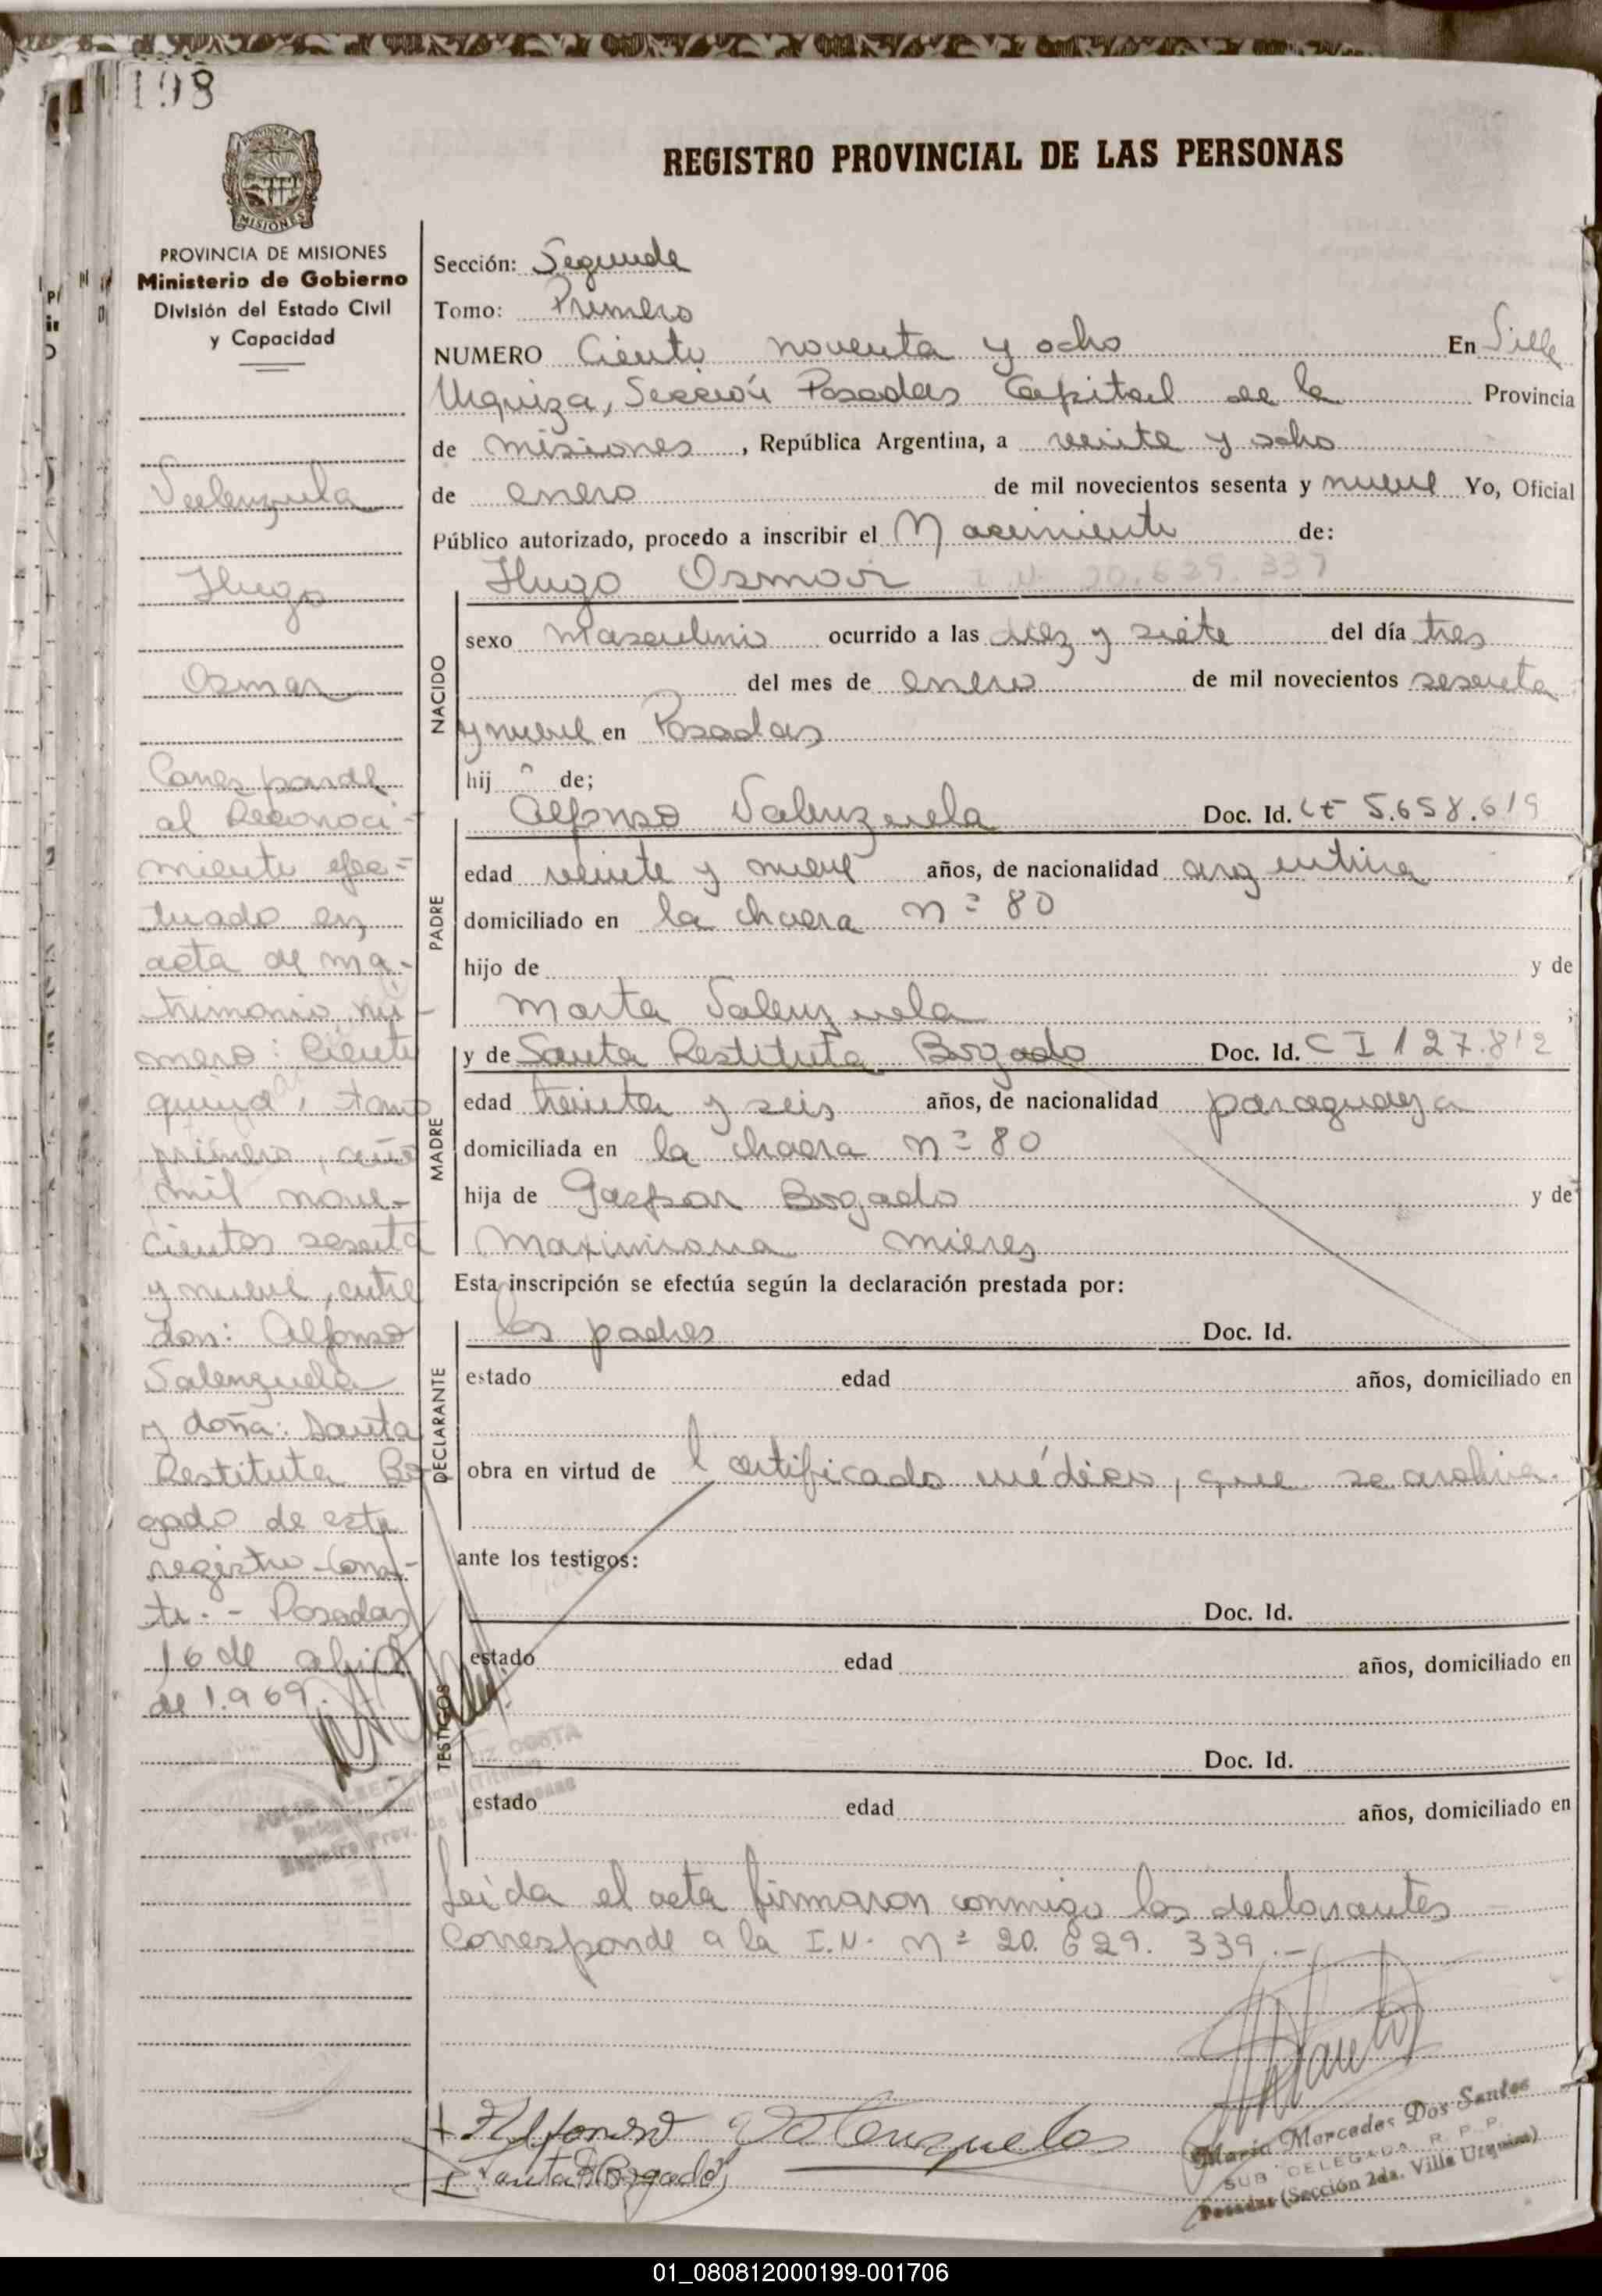 198
MISIONES
PROVINCIA DE MISIONES
Ministerio de Gobierno
División del Estado Civil
y Capacidad
Valenzuela
Hugo
Osmar
Corresponde
al Reconoci-
miento efec=
tuado en
acta de ma-
trimonio nú-
mero: Ciento
tomo
primero, año
mil nove-
cientos sesenta
y nueve, entre
don: Alfonso
Valenzuela
y doña: Santa
Restituta Bo
gado de este
registro. Cons-
te. - Posadas
16 de abril
de 1.969.
REGISTRO PROVINCIAL DE LAS PERSONAS
Sección: Segunda
Tomo: Primero
NUMERO Ciento noventa y ocho En Villa
Urquiza, Sección Posadas Capital de la Provincia
de misiones, República Argentina, a veinte y ocho
de enero de mil novecientos sesenta y nueve Yo, Oficial
Público autorizado, procedo a inscribir el Nacimiento de:
Hugo Osmar I.N. 20.629.339
NACIDO
sexo masculino ocurrido a las diez y siete del día tres
del mes de enero de mil novecientos sesenta
y nueve en Posadas
hijo de;
PADRE
Alfonso Valenzuela Doc. Id. 5.658.619
edad veinte y nueve años, de nacionalidad argentina
domiciliado en la chacra nº 80
hijo de y de
Marta Valenzuela;
MADRE
y de Santa Restituta Bogado Doc. Id. C I 127.812
edad treinta y seis años, de nacionalidad paraguaya
domiciliada en la chacra nº 80
hija de Gaspar Bogado y de
Maximiana mieres
Esta inscripción se efectúa según la declaración prestada por:
DECLARANTE
los padres Doc. Id.
estado edad años, domiciliado en
obra en virtud de l certificado médico, que se archiva.
ante los testigos:
TESTIGOS
Doc. Id.
estado edad años, domiciliado en
Doc. Id.
estado edad años, domiciliado en
Leída el acta firmaron conmigo los declarantes
Corresponde a la I.N. nº 20.629.339.-
Alfonso Valenzuela
Santa R Bogado
María Mercedes Dos Santos
SUB DELEGADA R. P. P.
Posadas (Sección 2da. Villa Urquiza)
01_080812000199-001706